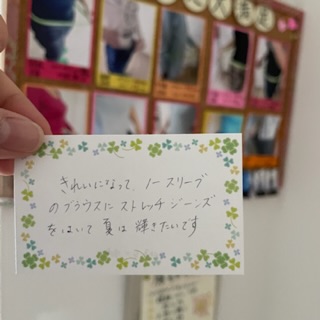 きれいになって、ノースリーブ
のブラウスにストレッチジーンズ
をはいて 夏は 輝きたいです